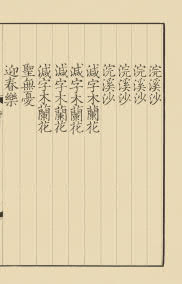 浣溪沙
浣溪沙
浣溪沙
浣溪沙
減字木蘭花
減字木蘭花
減字木蘭花
減字木蘭花
聖無憂
迎春樂